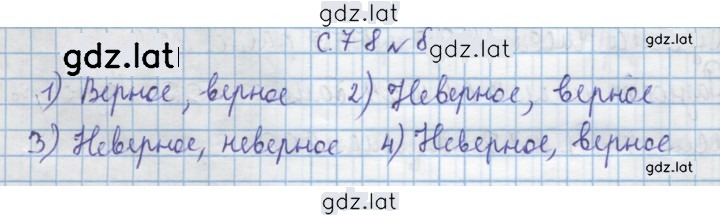 gdz.lat
С. 78 № 8
gdz.lat
gdz.lat
1) Верное, верное 2) Неверное, верное
3) Неверное, неверное 4) Неверное, верное
gdz.lat
gdz.lat